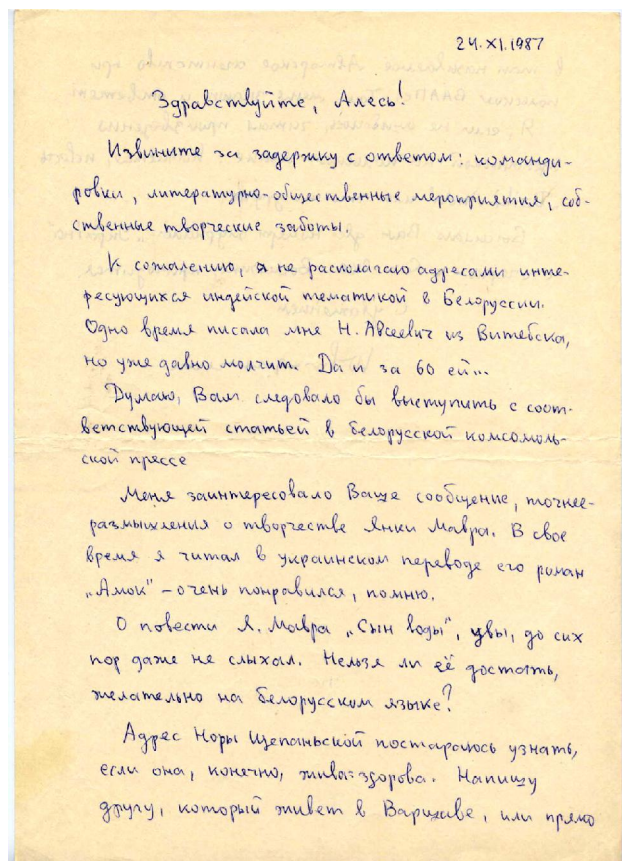 24.XI.1987
Здравствуйте, Алесь!
Извините за задержку с ответом: команди-
ровки, литературно-общественные мероприятия, соб-
ственные творческие заботы.
К сожалению, я не располагаю адресами инте-
ресующихся индейской тематикой в Белоруссии.
Одно время писала мне Н. Авсеевич из Витебска,
но уже давно молчит. Да и за 60 ей...
Думаю, Вам следовало бы выступить с соот-
ветствующей статьей в белорусской комсомоль-
ской прессе
Меня заинтересовало Ваше сообщение, точнее-
размышления о творчестве Янки Мавра. В свое
время я читал в украинском переводе его роман
„Амок" – очень понравился, помню.
О повести Я. Мавра „Сын воды", увы, до сих
пор даже не слыхал. Нельзя ли её достать,
желательно на белорусском языке?
Адрес Норы Щепаньской постараюсь узнать,
если она, конечно, жива-здорова. Напишу
другу, который живет в Варшаве, или прямо